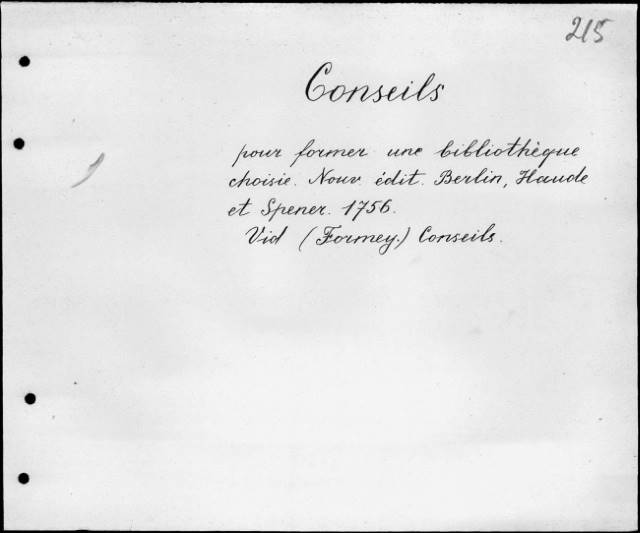 215
Conseils
pour former une bibliothèque
choisie. Nouv. édit. Berlin, Haude
et Spener. 1756.
Vid (Formey.) Conseils.